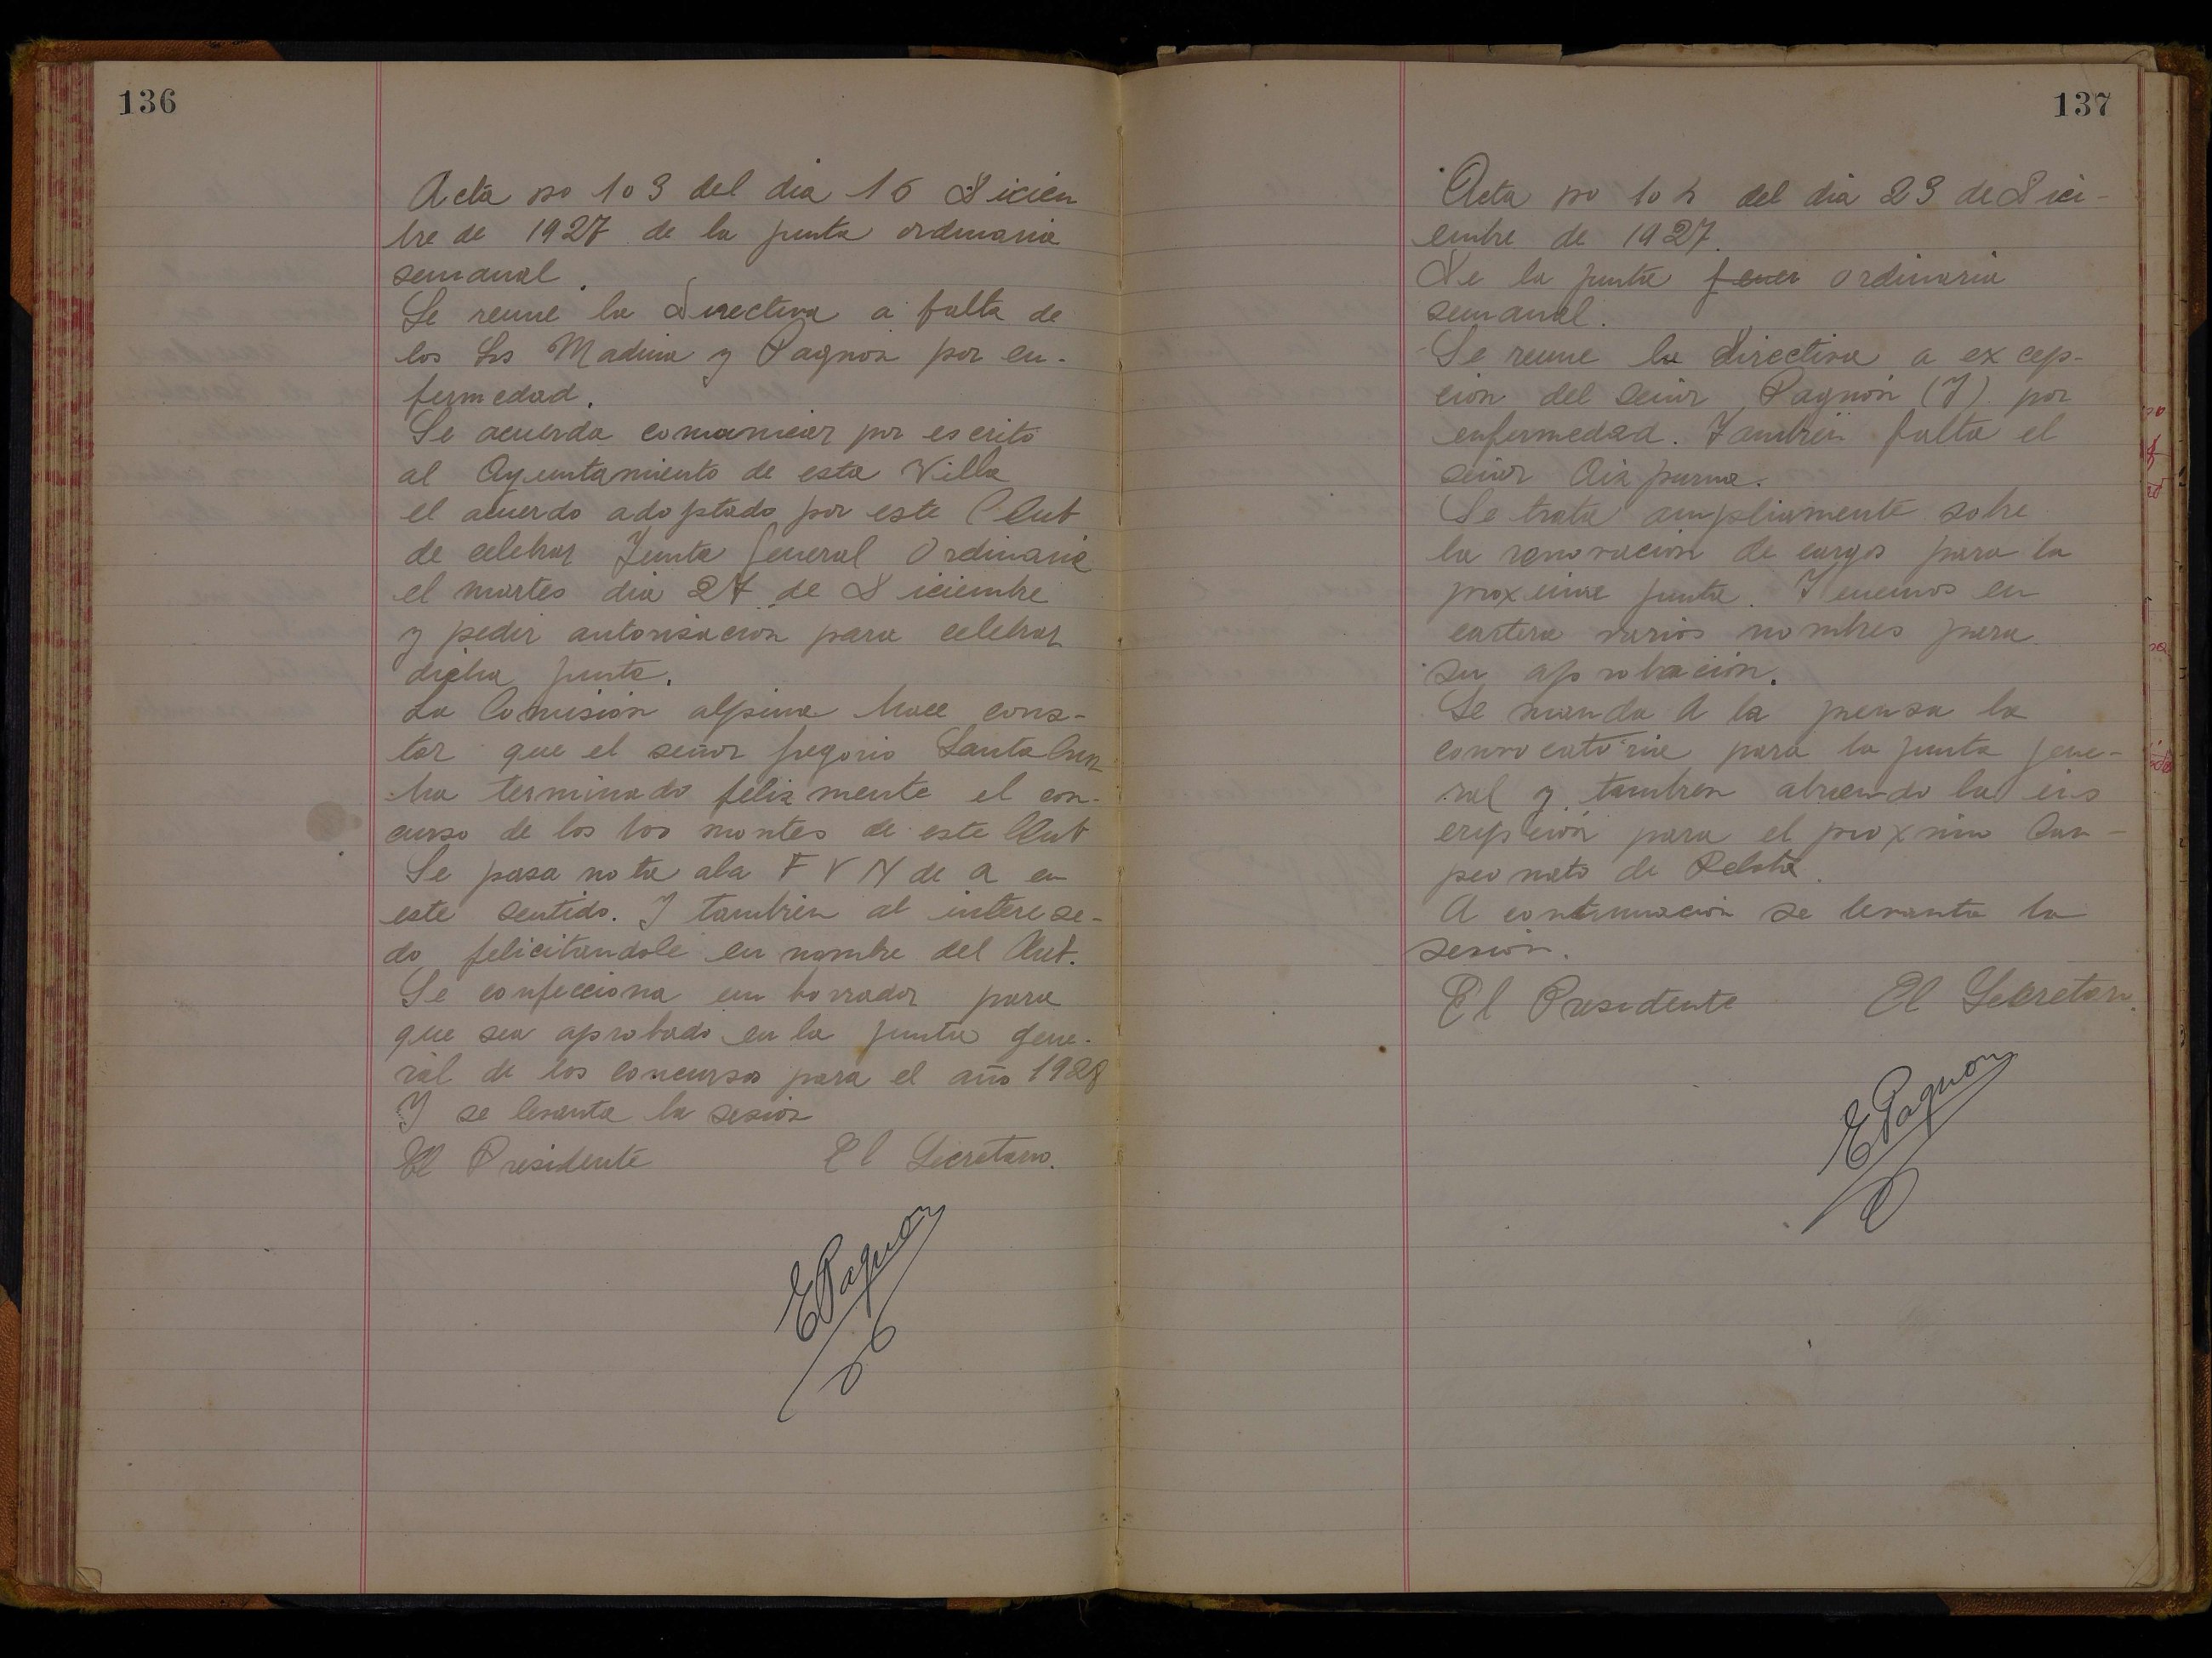 136
Acta no 103 del dia 16 Diciem
bre de 1927 de la junta ordinaria
semanal.
Se reune la Directiva a falta de
los Srs Madina y Pagnon por en-
fermedad.
Se acuerda comunicar por escrito
al Ayuntamiento de esta Villa
el acuerdo adoptado por este Club
de celebrar Junta General Ordinaria
el martes dia 27 de Diciembre
y pedir autorisacion para celebrar
dicha junta.
La Comision alpina hace cons-
tar que el señor Gregorio Santa Cruz
ha terminado felizmente el con-
curso de los 100 montes de este Club
Se pasa nota a la F V N de A en
este sentido. Y tambien al interesa-
do felicitandole en nombre del Club.
Se confecciona un borrador para
que sea aprobado en la junta gene-
ral de los concursos para el año 1928
Y se levanta la sesion
El Presidente El Secretario.
E Pagnon
137
Acta no 104 del dia 23 de Dici-
embre de 1927.
De la junta gener ordinaria
semanal.
Se reune la directiva a excep-
cion del señor Pagnon (J) por
enfermedad. Tambien falta el
señor Aizpurua.
Se trata ampliamente sobre
la renovacion de cargos para la
proxima junta. Tenemos en
cartera varios nombres para
su aprobacion.
Se manda a la prensa la
convocatoria para la junta gene-
ral y tambien abriendo la ins
cripcion para el proximo Cam-
peonato de Pelota.
A continuacion se levanta la
sesion.
El Presidente El Secretario.
E Pagnon